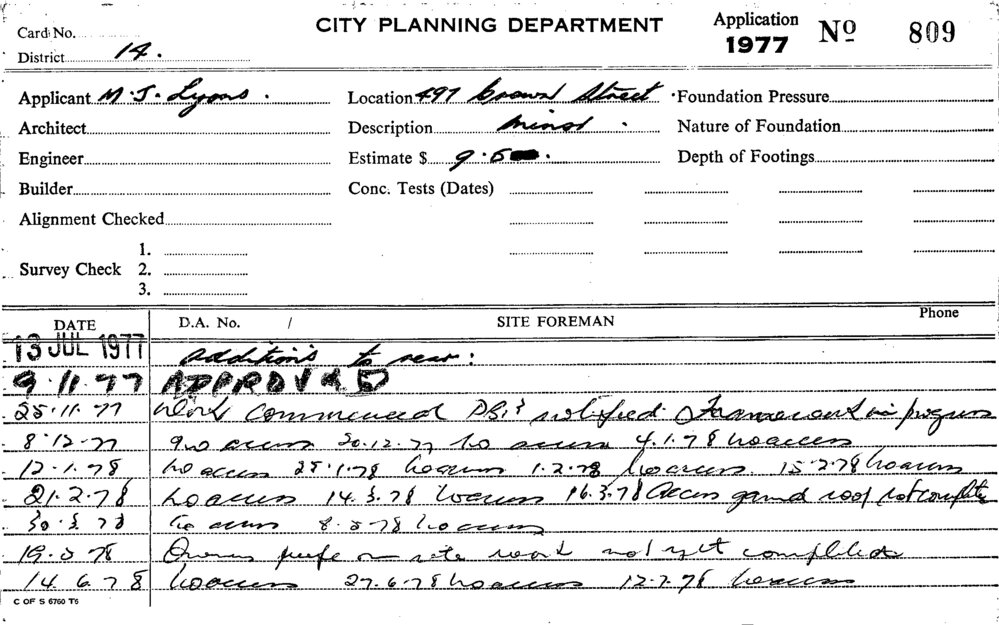 Card No.
District 14.
CITY PLANNING DEPARTMENT
Application 1977 Nº 809
Applicant M.J. Lyons.
Location 497 Crown Street.
Foundation Pressure
Architect
Description minor.
Nature of Foundation
Engineer
Estimate $ 9.5
Depth of Footings
Builder
Conc. Tests (Dates)
Alignment Checked
Survey Check
1.
2.
3.
DATE D.A. No. / SITE FOREMAN Phone
13 JUL 1977 additions to rear:
9.11.77 APPROVED
25.11.77 Work commenced notified Framework in progress
8.12.77 no access 20.12.77 no access 4.1.78 no access
12.1.78 no access 25.1.78 no access 1.2.78 no access 15.2.78 no access
21.2.78 no access 14.3.78 no access 16.3.78 Access gained roof not complete
30.3.78 no access 8.5.78 no access
19.5.78 Owners on site work not yet completed
14.6.78 no access 27.6.78 no access 12.7.78 no access
C OF S 6760 T6